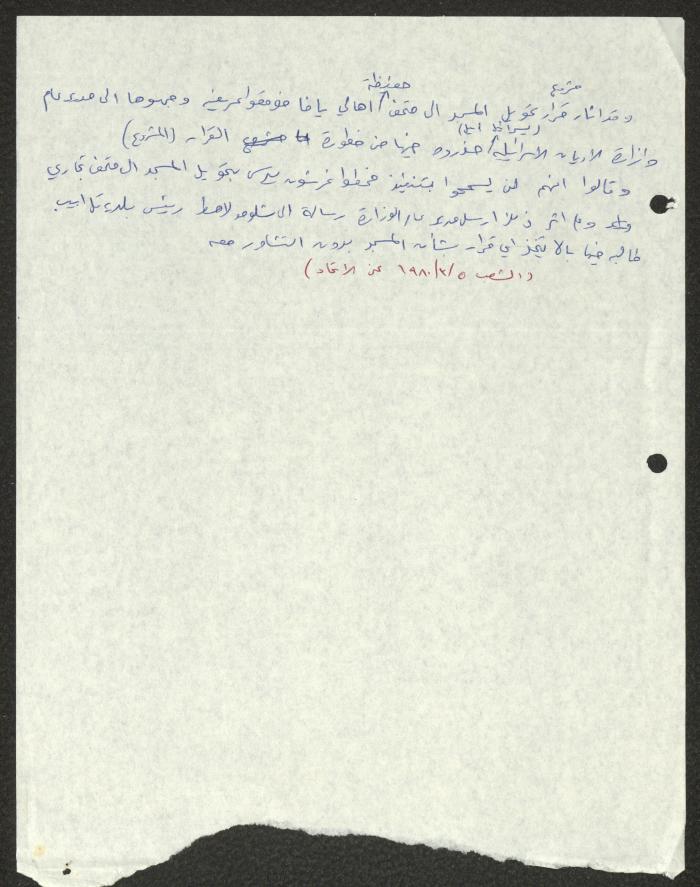 مشروع حفيظة
وقد اثار قرار تحويل المسجد الى متحف اهالي يافا فوقعوا عريضة وجهوها الى مدير عام
(يسرائيل
وزارة الاديان الاسرائيلية حذروه فيها من خطورة القرار (المشروع)
وقالوا انهم لن يسمحوا بتنفيذ مخطط غرشون بيرس بتحويل المسجد الى متحف تجاري
وعلى اثر ذلك ارسل مدير عام الوزارة رسالة الى شلومو لاهط رئيس بلدية تل ابيب
طالبه فيها بالا يتخذ اي قرار بشأن المسجد بدون التشاور معه
(الشعب ٥/٣/١٩٨٠ عن الاتحاد)